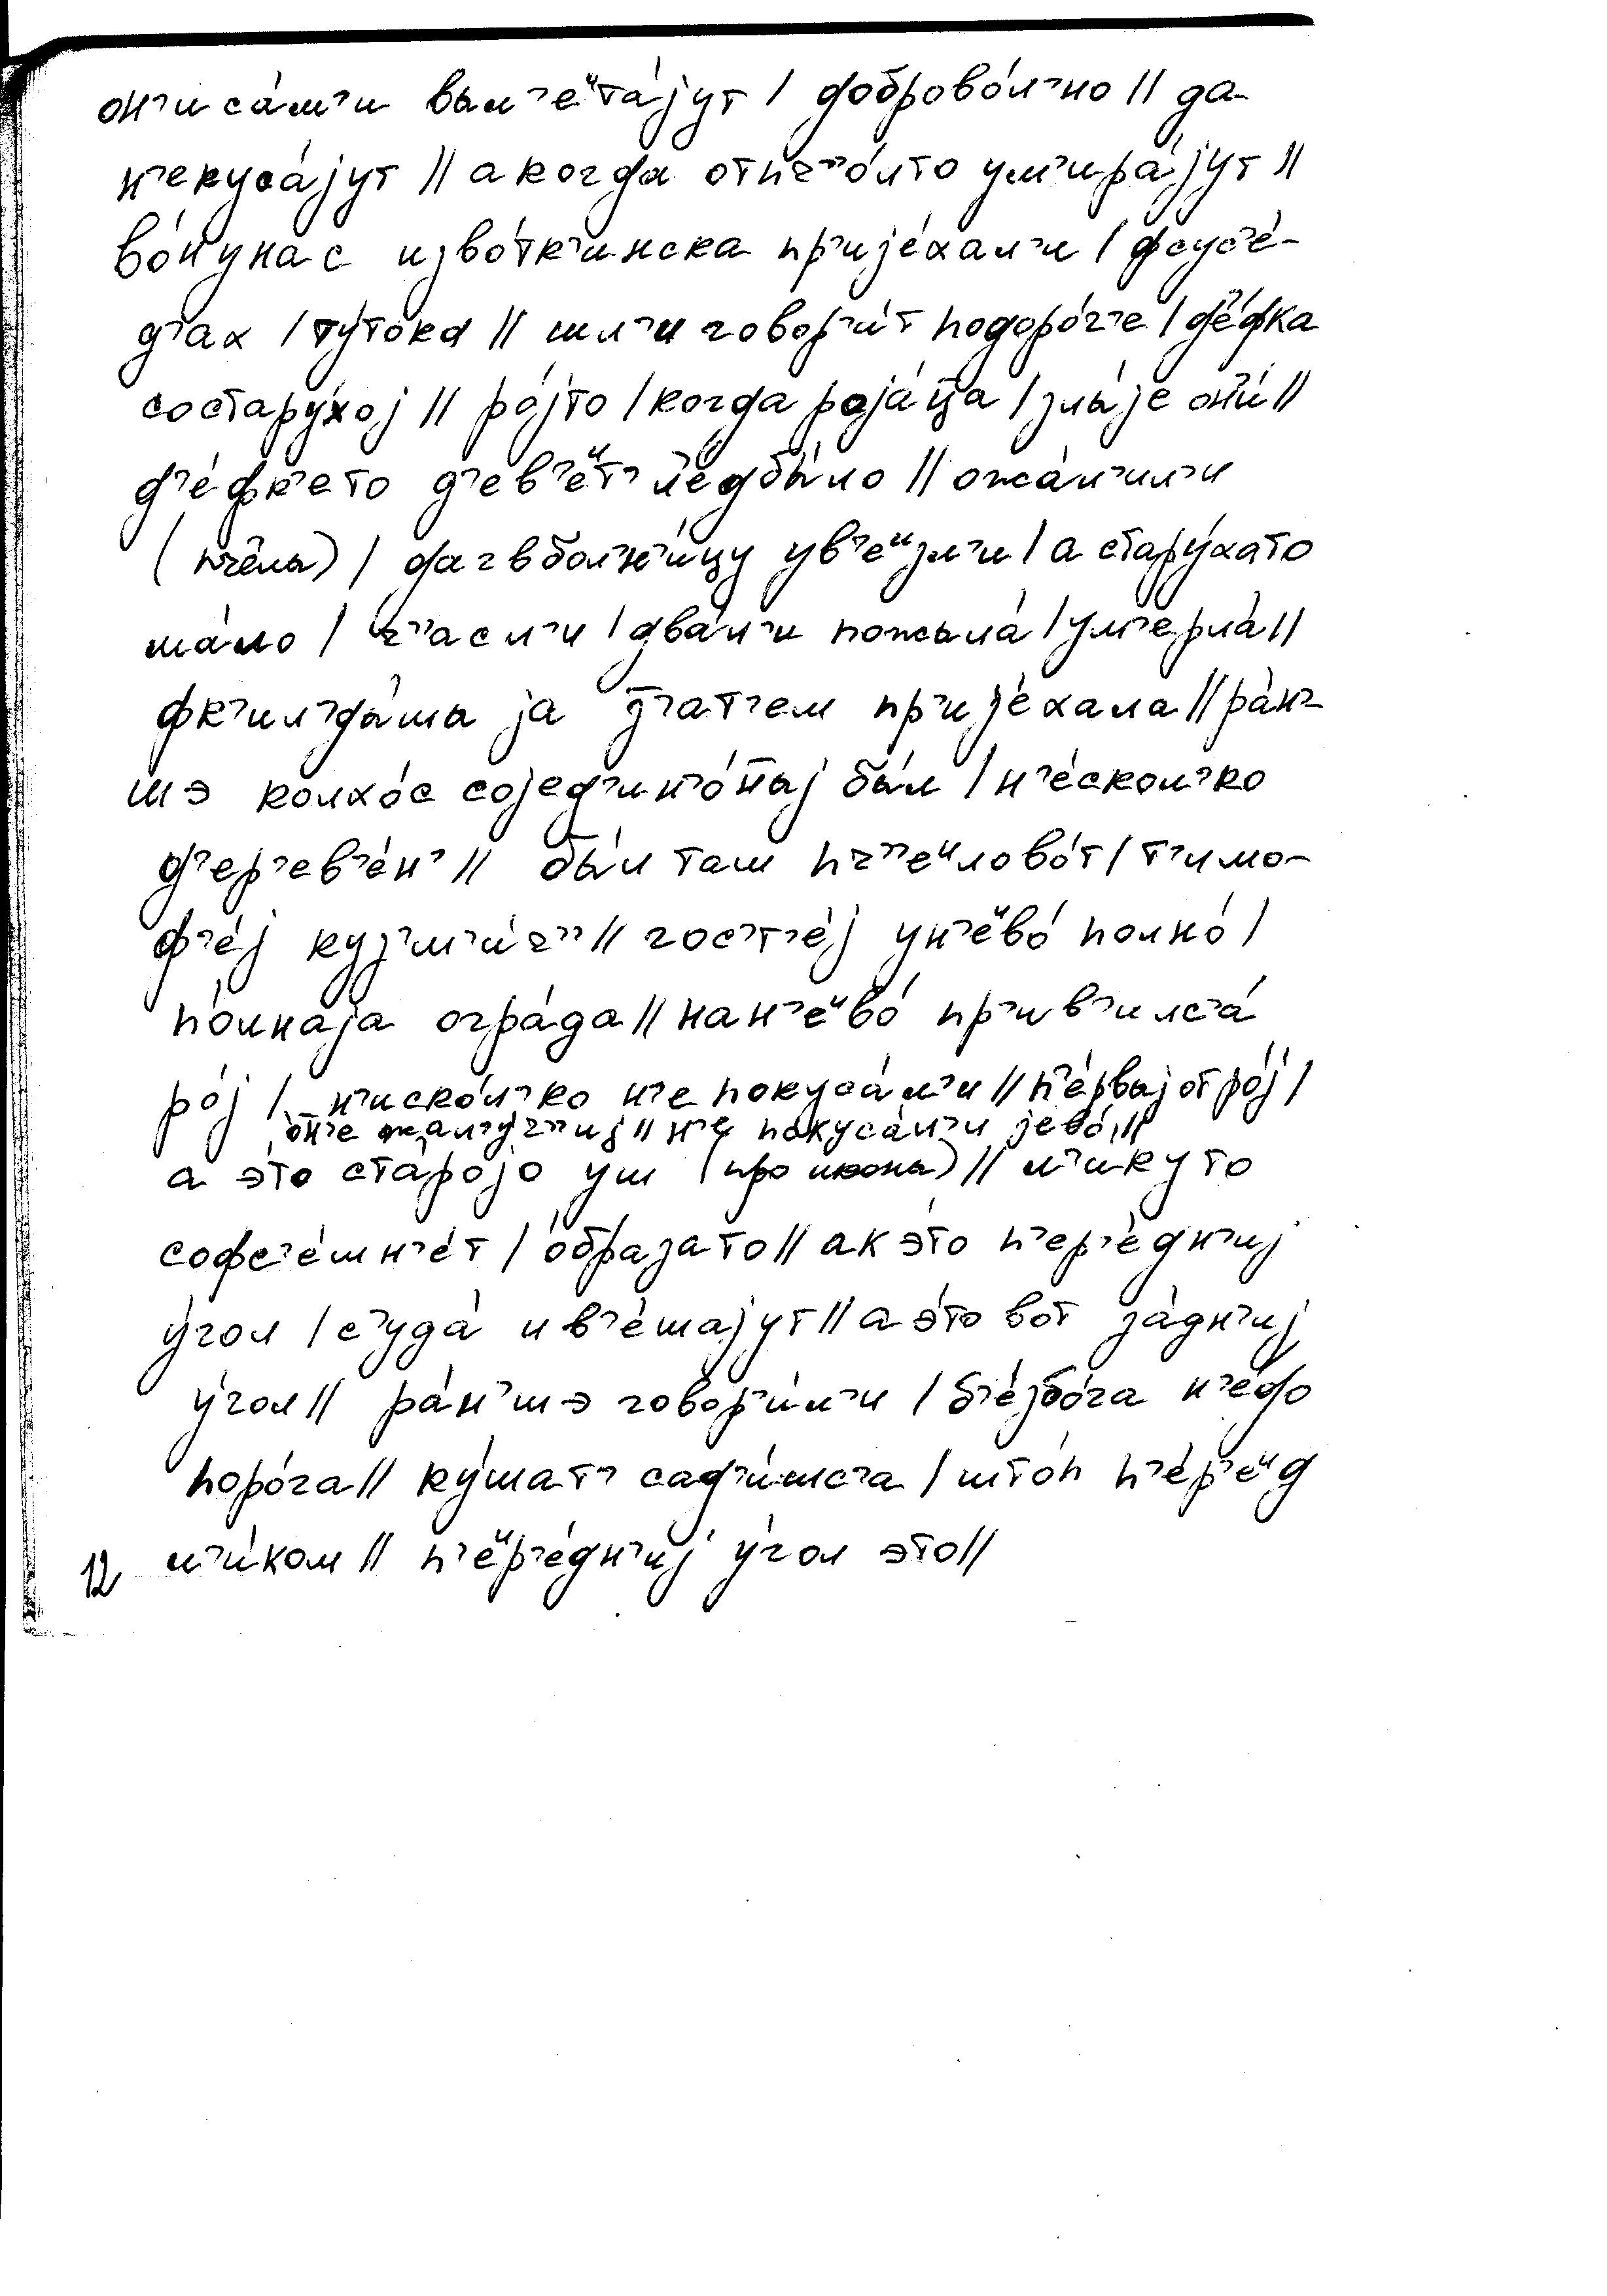 он'иса́м'и выл'еⁱта́јут / доброво́л'но // да-
н'екуса́јут // а когда отпч''о́лто ум'ира́јут //
во́нунас изво́тк'инска пр'ијéхал'и / фсус'е́-
д'ах / ту́тока // шл'и говор'и́т подоро́г'е / д'е́фка
состару́хој // ро́јто / когда роја́ц̄а / злы́је он'и́ //
д'е́фк'ето д'ев'еⁱт' л'едбы́ло // ожа́л'ил'и
(пчёлы) / даг в бол'н'и́цу ув'еⁱзл'и / а стару́хато
ма́ло / ч''асл'и / два́л'и пожыла́ / ум'ерла́ //
фк'ил'ды́шы ја з̄'ат'ем пр'ијéхала // ра́н'-
шэ колхо́с сојед'ин'о́н̄ыј бы́л / н'е́скол'ко
д'ер'ев'е́н' // бы́л там пч''еⁱлово́т / т'имо-
ф'е́ј куз'м'и́ч'' // гос'т'е́ј ун'еⁱво́ полно́ /
по́лнаја огра́да // нан'еⁱво́ пр'ив'илс'а́
ро́ј / н'иско́л'ко н'е покуса́л'и // п'е́рвыј отро́ј /
он'е жал'у́ч''иј // н'е покуса́л'и јево́ //
а э́то ста́ројо уш (про иконы) // л'икуто
софс'е́мн'е́т / о́бразато // ак э́то п'ер'е́дн'иј
у́гол / с'уда́ и в'е́шајут // а э́то вот за́дн'иј
у́гол // ра́н'шэ говор'и́л'и / б'е́збо́га н'едо
поро́га // ку́шат' сад'и́мс'а / што́п п'е́р'еⁱд
л'и́ком // п'еⁱр'е́дн'иј у́гол это //
12